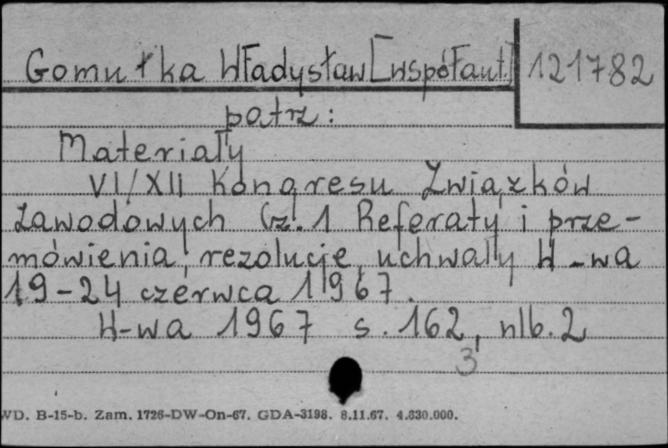 Gomułka Władysław [współaut.] 121782
patrz:
Materiały
VI/XII Kongresu Związków
Zawodowych Cz. 1 Referaty i prze-
mówienia, rezolucje, uchwały W-wa
19-24 czerwca 1967.
W-wa 1967 s. 162, nlb. 2
3
WD. B-15-b. Zam. 1726-DW-On-67. GDA-3198. 8.11.67. 4.630.000.